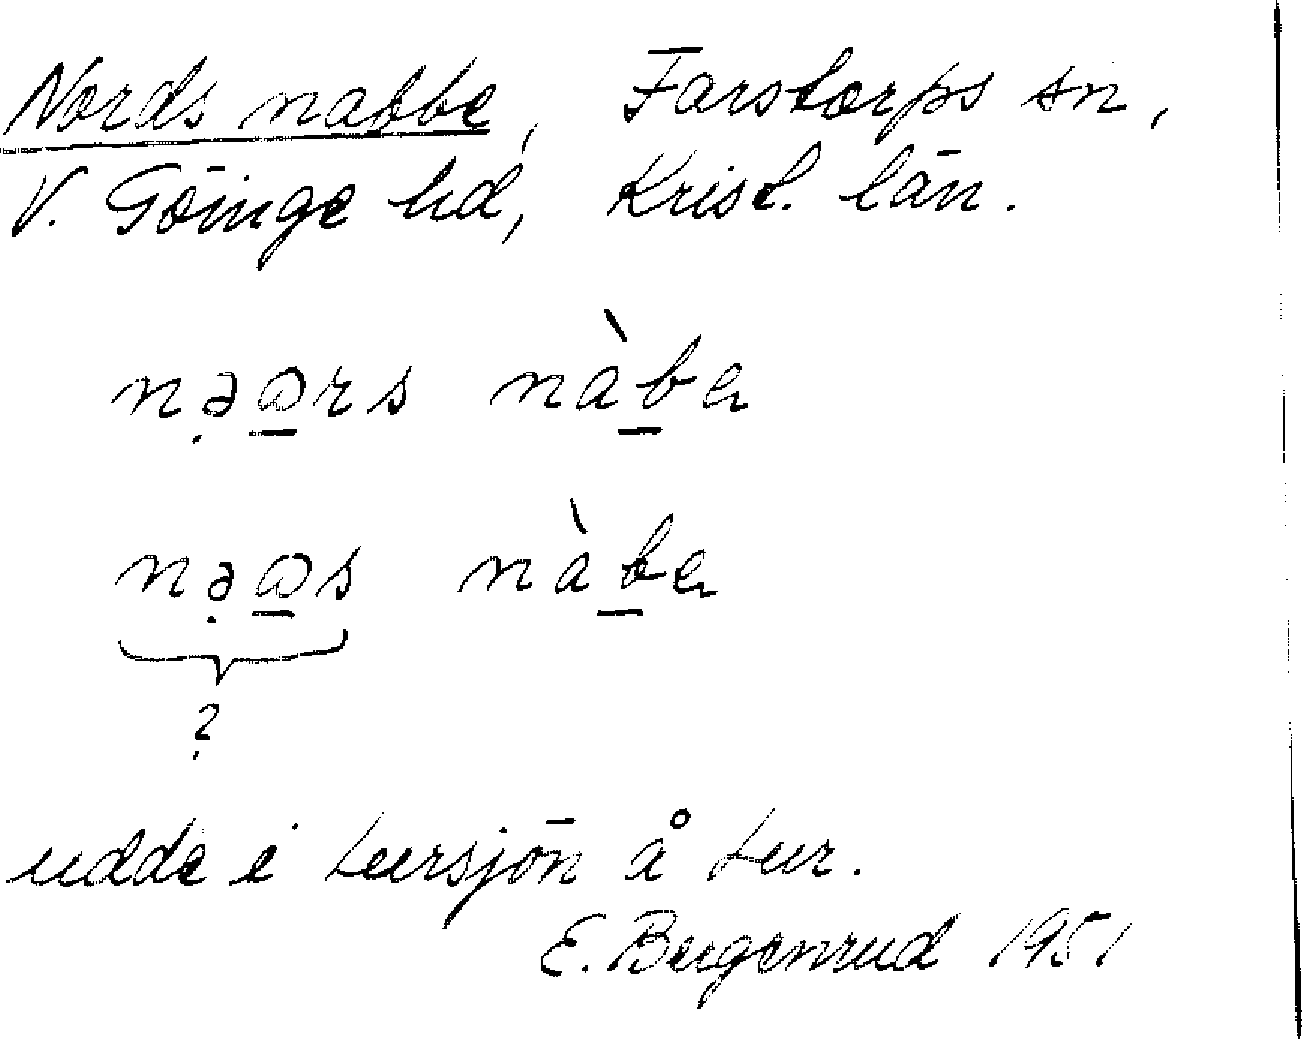 Nords nabbe, Farstorps sn,
V. Göinge hd, Krist. län.
nə̣ɷ̱rs nàḇɐ
nə̣ɷ̱s nàḇɐ
?
udde i Lursjön å Lur.
E. Bergenrud 1951